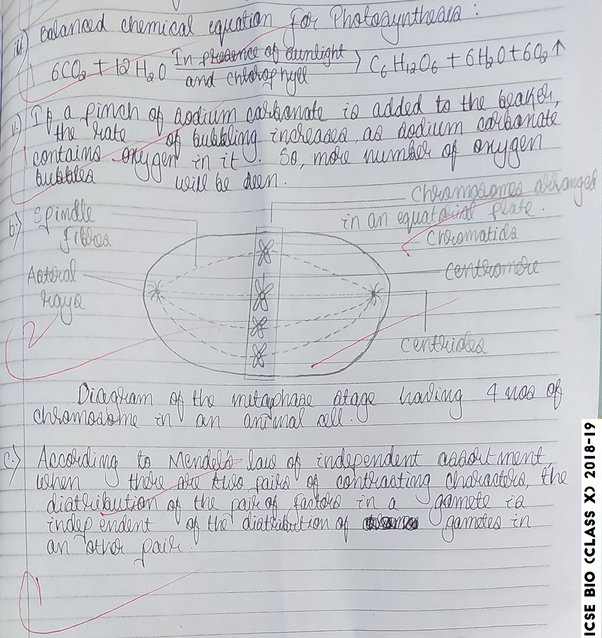 iv) Balanced chemical equation for Photosynthesis :
6CO2 + 12H2O In presence of sunlight and chlorophyll → C6H12O6 + 6H2O + 6O2 ↑
v) If a pinch of sodium carbonate is added to the beaker,
the rate of bubbling increases, as sodium carbonate
contains oxygen in it. So, more number of oxygen
bubbles will be seen.
b.) Spindle
fibres
Chromosomes arranged
in an equatorial plate.
Chromatids
Asteral
rays
Centromere
Centrioles
2
Diagram of the metaphase stage having 4 nos of
chromosome in an animal cell.
c.) According to Mendel's law of independent assortment,
when there are two pairs of contrasting characters, the
distribution of the pair of factors in a gamete is
independent of the distribution of gametes in
an other pair.
1
ICSE BIO (CLASS X) 2018-19